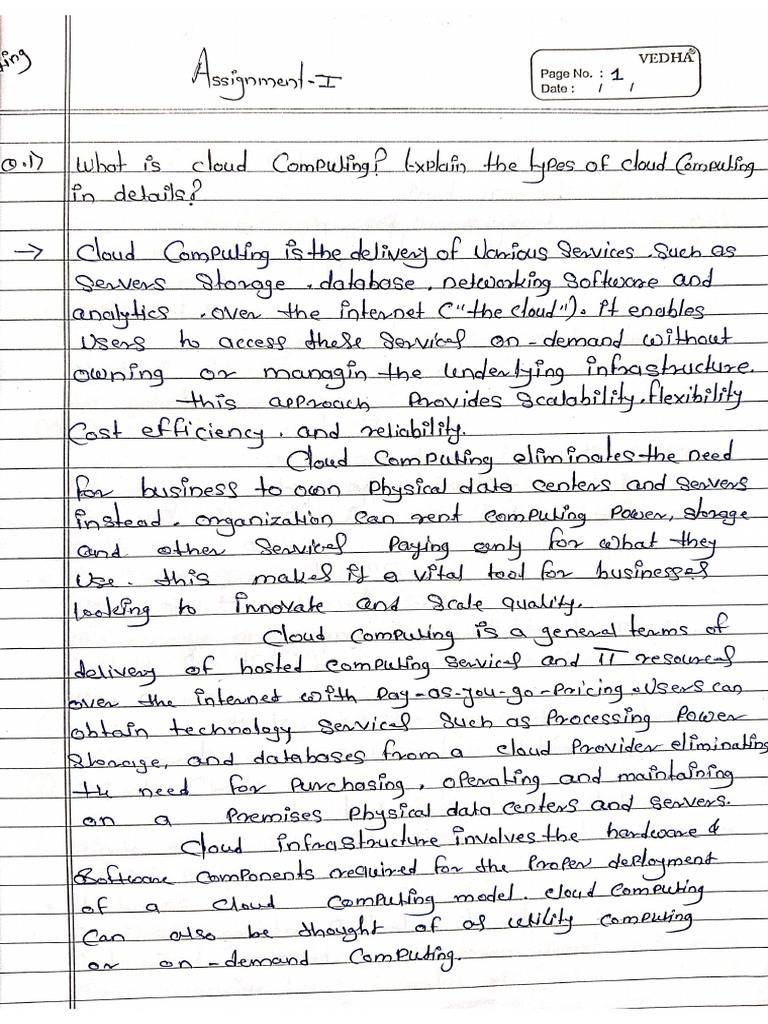 ting
Assignment-I
VEDHA®
Page No. : 1
Date : / /
Q.1) What is cloud Computing? Explain the types of cloud Computing
in details?
→ Cloud Computing is the delivery of various services. such as
servers storage . database . networking software and
analytics . over the internet ("the cloud"). it enables
users to access these services on-demand without
owning or managin the underlying infrastructure.
this approach Provides scalability.flexibility
Cost efficiency . and reliability.
Cloud Computing eliminates the need
for business to own Physical data centers and servers
instead . organization can rent computing Power, storage
and other services Paying only for what they
use . this makes it a vital tool for businesses
looking to innovate and scale quality.
Cloud Computing is a general terms of
delivery of hosted computing services and IT resources
over the internet with Pay-as-you-go-Pricing . Users can
obtain technology services such as Processing Power
storage, and databases from a cloud Provider eliminating
the need for Purchasing , operating and maintaining
on a Premises Physical data centers and servers.
Cloud infrastructure involves the hardware &
Software components required for the Proper deployment
of a cloud Computing model. cloud Computing
Can also be thought of as utility computing
or on-demand Computing.